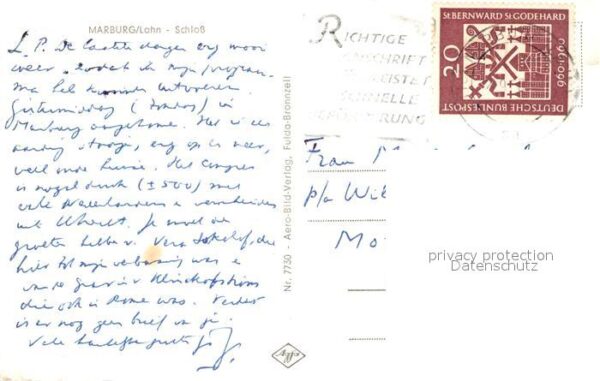 MARBURG/Lahn - Schloß
L. P. De laatste dagen erg mooi
weer zodat ik mijn program-
ma heb kunnen uitvoeren.
Gistermiddag ( ) in
Marburg aangekomen. Het is een
aardig stadje, erg op en neer,
veel oude huizen. Het congres
is nogal druk (± 500) met
vele Nederlanders en verscheidene
uit Utrecht. Je moet de
groeten hebben v. Vera die
hier tot mijn verbazing was en
van de
die ook in Rome was. Verder
is er nog geen brief van je.
Vele hartelijke groeten
Nr. 7730 - Aero-Bild-Verlag, Fulda-Bronnzell
RICHTIGE
ANSCHRIFT
LEISTET
SCHNELLE
ST. BERNWARD ST. GODEHARD
960-1960
20
DEUTSCHE BUNDESPOST
Frau
p/a Wil
Mo
privacy protection
Datenschutz
Agfa